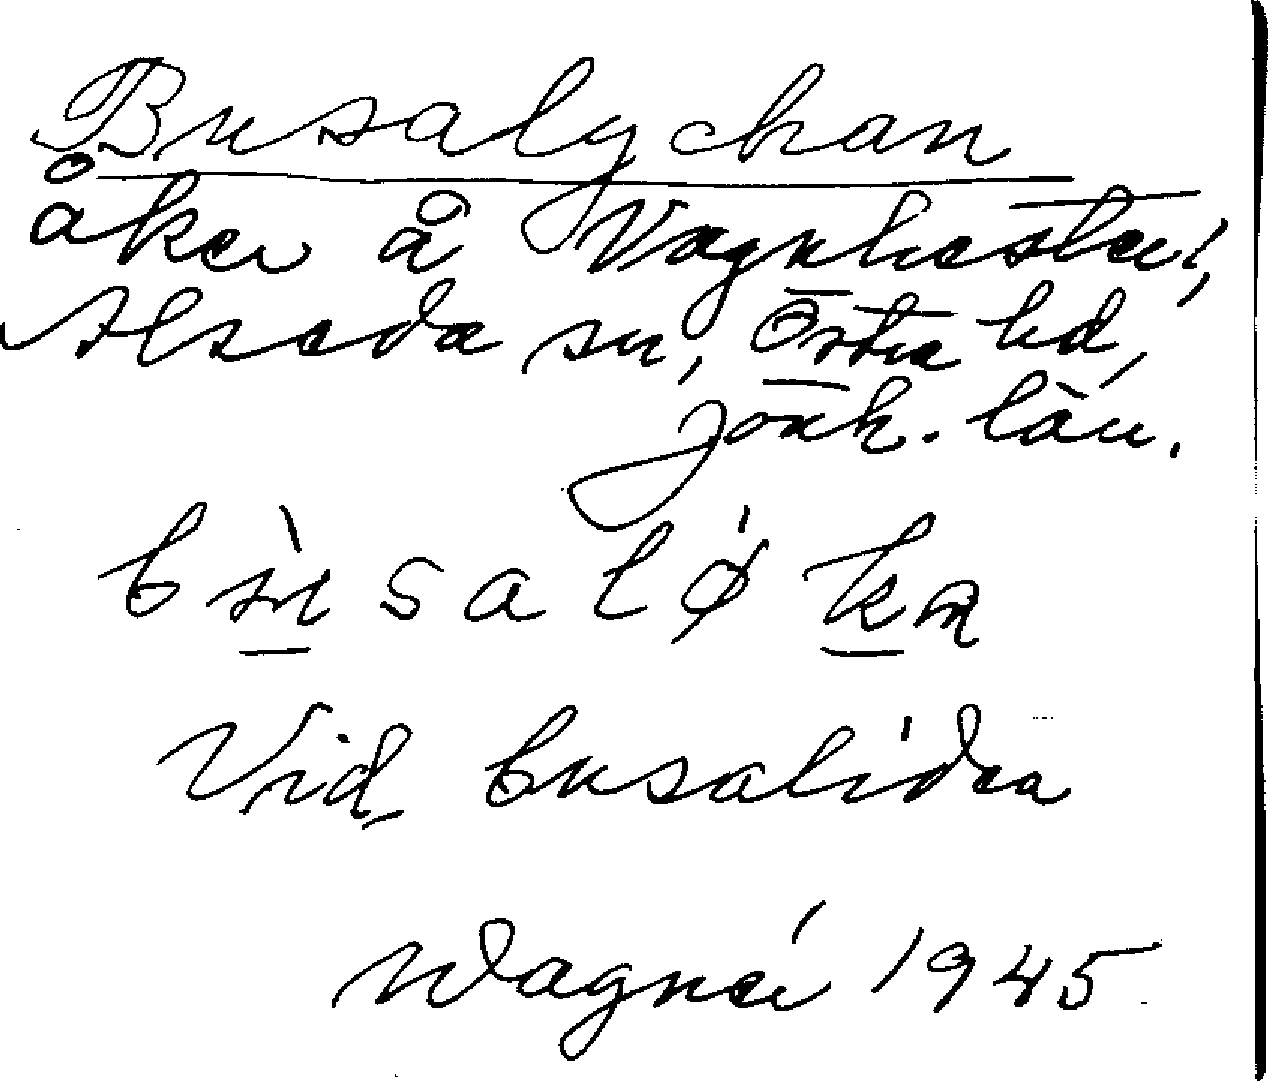 Busalyckan
åker å Vagnhester,
Alseda sn, Östra hd,
Jönk. län.
bùsaløka
Vid busaliden
Wagnér 1945